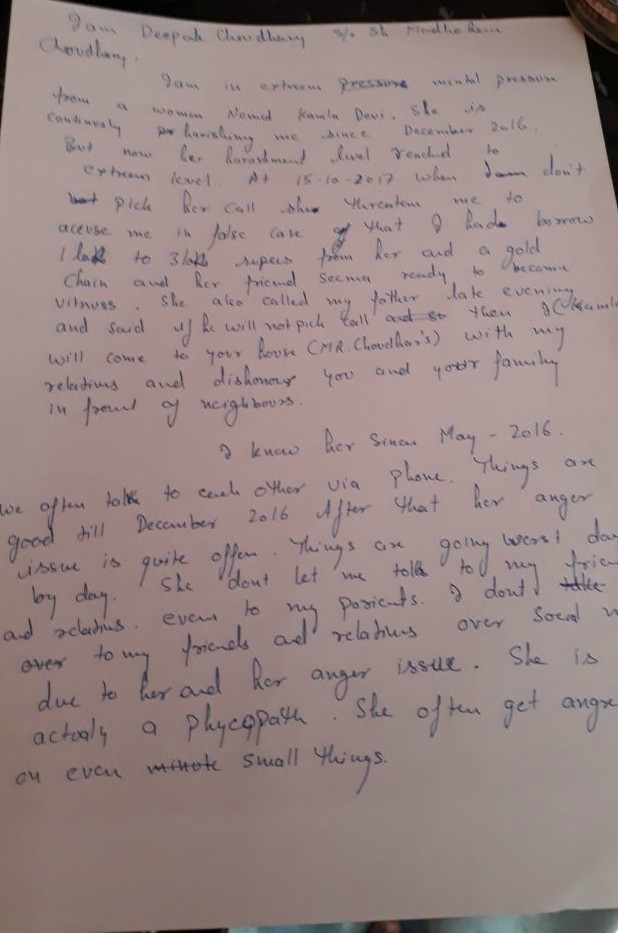 I am Deepak Choudhary S/o Sh Madho Ram
Choudhary.
I am in extreem pressure mental pressure
from a women Nomed Kamla Devi. She is
continusly harishing me since December 2016.
But now her harashment level reached to
extreem level. At 15-10-2017 when I don't
pick her call she threatem me to
accuse me in false case of that I had borrow
1 lakh to 3 lakh rupees from her and a gold
Chain and her friend Seema ready to become
vitnuss. She also called my father late evening
and said if he will not pick call and so then I (Kamla
will come to your house (MR. Choudhar's) with my
relatives and dishonour you and your family
in frount of neighbours.
I know her Since May - 2016.
We often talk to each other via phone. Things are
good till December 2016 After that her anger
issue is quite offen. Things are going worst day
by day. She dont let me talk to my
and relatives. even to my parients. I dont talke
over to my friends and relatives over Social
due to her and her anger issue. She is
actualy a Phycopath. She often get
on even minute small things.